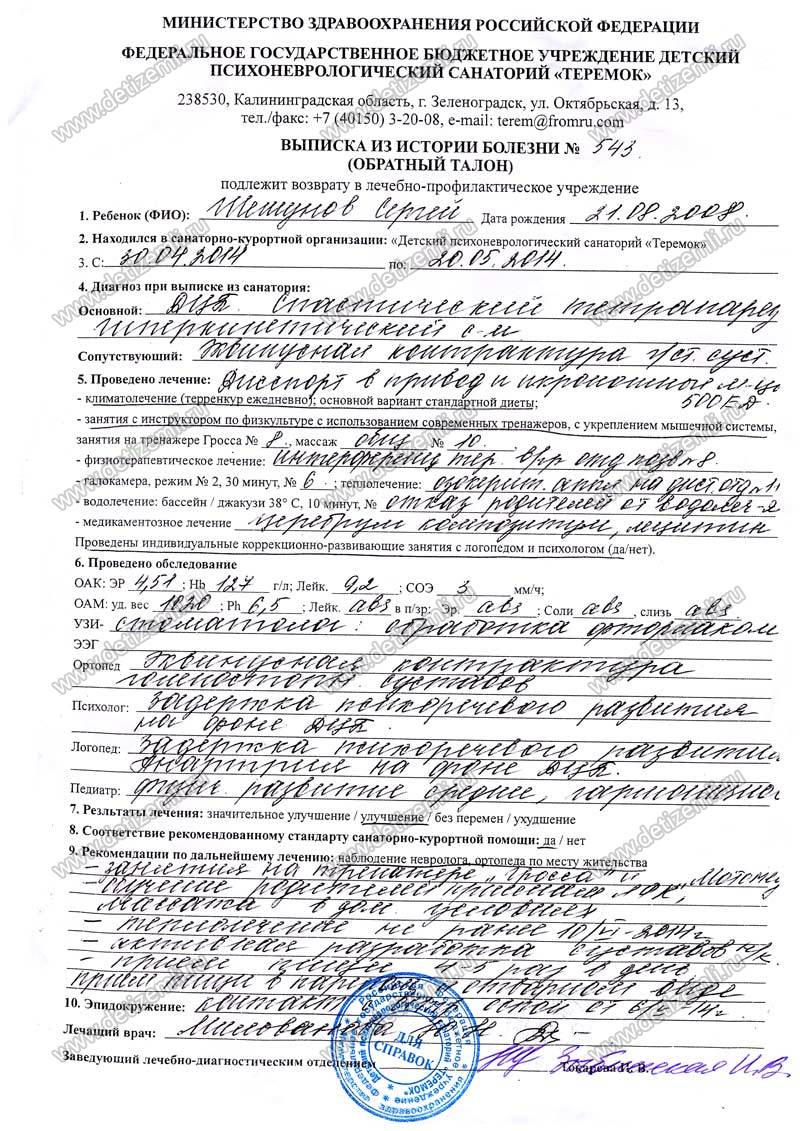 МИНИСТЕРСТВО ЗДРАВООХРАНЕНИЯ РОССИЙСКОЙ ФЕДЕРАЦИИ
ФЕДЕРАЛЬНОЕ ГОСУДАРСТВЕННОЕ БЮДЖЕТНОЕ УЧРЕЖДЕНИЕ ДЕТСКИЙ
ПСИХОНЕВРОЛОГИЧЕСКИЙ САНАТОРИЙ «ТЕРЕМОК»
238530, Калининградская область, г. Зеленоградск, ул. Октябрьская, д. 13,
тел./факс: +7 (40150) 3-20-08, e-mail: terem@fromru.com
ВЫПИСКА ИЗ ИСТОРИИ БОЛЕЗНИ № 543
(ОБРАТНЫЙ ТАЛОН)
подлежит возврату в лечебно-профилактическое учреждение
1. Ребенок (ФИО): Шешунов Сергей Дата рождения 21.08.2008.
2. Находился в санаторно-курортной организации: «Детский психоневрологический санаторий «Теремок»
3. С: 30.04.2014 по: 20.05.2014.
4. Диагноз при выписке из санатория:
Основной: ДЦП. Спастический тетрапарез
гиперкинетический с-м
Сопутствующий: Эквинусная контрактура г/ст. суст.
5. Проведено лечение: Диспорт в привод и икроножные м-цы
- климатолечение (терренкур ежедневно); основной вариант стандартной диеты; 500 ЕД.
- занятия с инструктором по физкультуре с использованием современных тренажеров, с укреплением мышечной системы,
занятия на тренажере Гросса № 8., массаж общ № 10.
- физиотерапевтическое лечение: интерференц. тер. отд. позв №8.
- галокамера, режим № 2, 30 минут, № 6 ; теплолечение: озокерит. апл на
- водолечение: бассейн / джакузи 38° С, 10 минут, № отказ родителей от водолеч-я
- медикаментозное лечение церебрум композитум, лецитин
Проведены индивидуальные коррекционно-развивающие занятия с логопедом и психологом (да/нет).
6. Проведено обследование
ОАК: ЭР 4,51 ; Hb 127 г/л; Лейк. 9,2 ; СОЭ 3 мм/ч;
ОАМ: уд. вес 1020 ; Ph 6,5 ; Лейк. abs в п/зр: Эр. abs ; Соли abs , слизь abs
УЗИ- стоматолог: обработка
ЭЭГ
Ортопед Эквинусная контрактура
голеностопн. суставов
Психолог: Задержка психоречевого развития
на фоне ДЦП.
Логопед: Задержка психоречевого развития
Анартрия на фоне ДЦП.
Педиатр: физич. развитие среднее, гармонично
7. Резльтаты лечения: значительное улучшение / улучшение / без перемен / ухудшение
8. Соответствие рекомендованному стандарту санаторно-курортной помощи: да / нет
9. Рекомендации по дальнейшему лечению: наблюдение невролога, ортопеда по месту жительства
- занятия на тренажере „Гросса" и
- обучение родителей приемам ЛФК,
массажа в дом. условиях
- теплолечение не ранее 10/VI-2014г
- активная разработка суставов н/к.
- прием пищи 4-5 раз в день
прием пищи в паровом и отварном виде
10. Эпидокружение: контакт
Лечащий врач: Милованова
Заведующий лечебно-диагностическим отделением Токарева И. В.
ДЛЯ
СПРАВОК
www.detizemli.ru